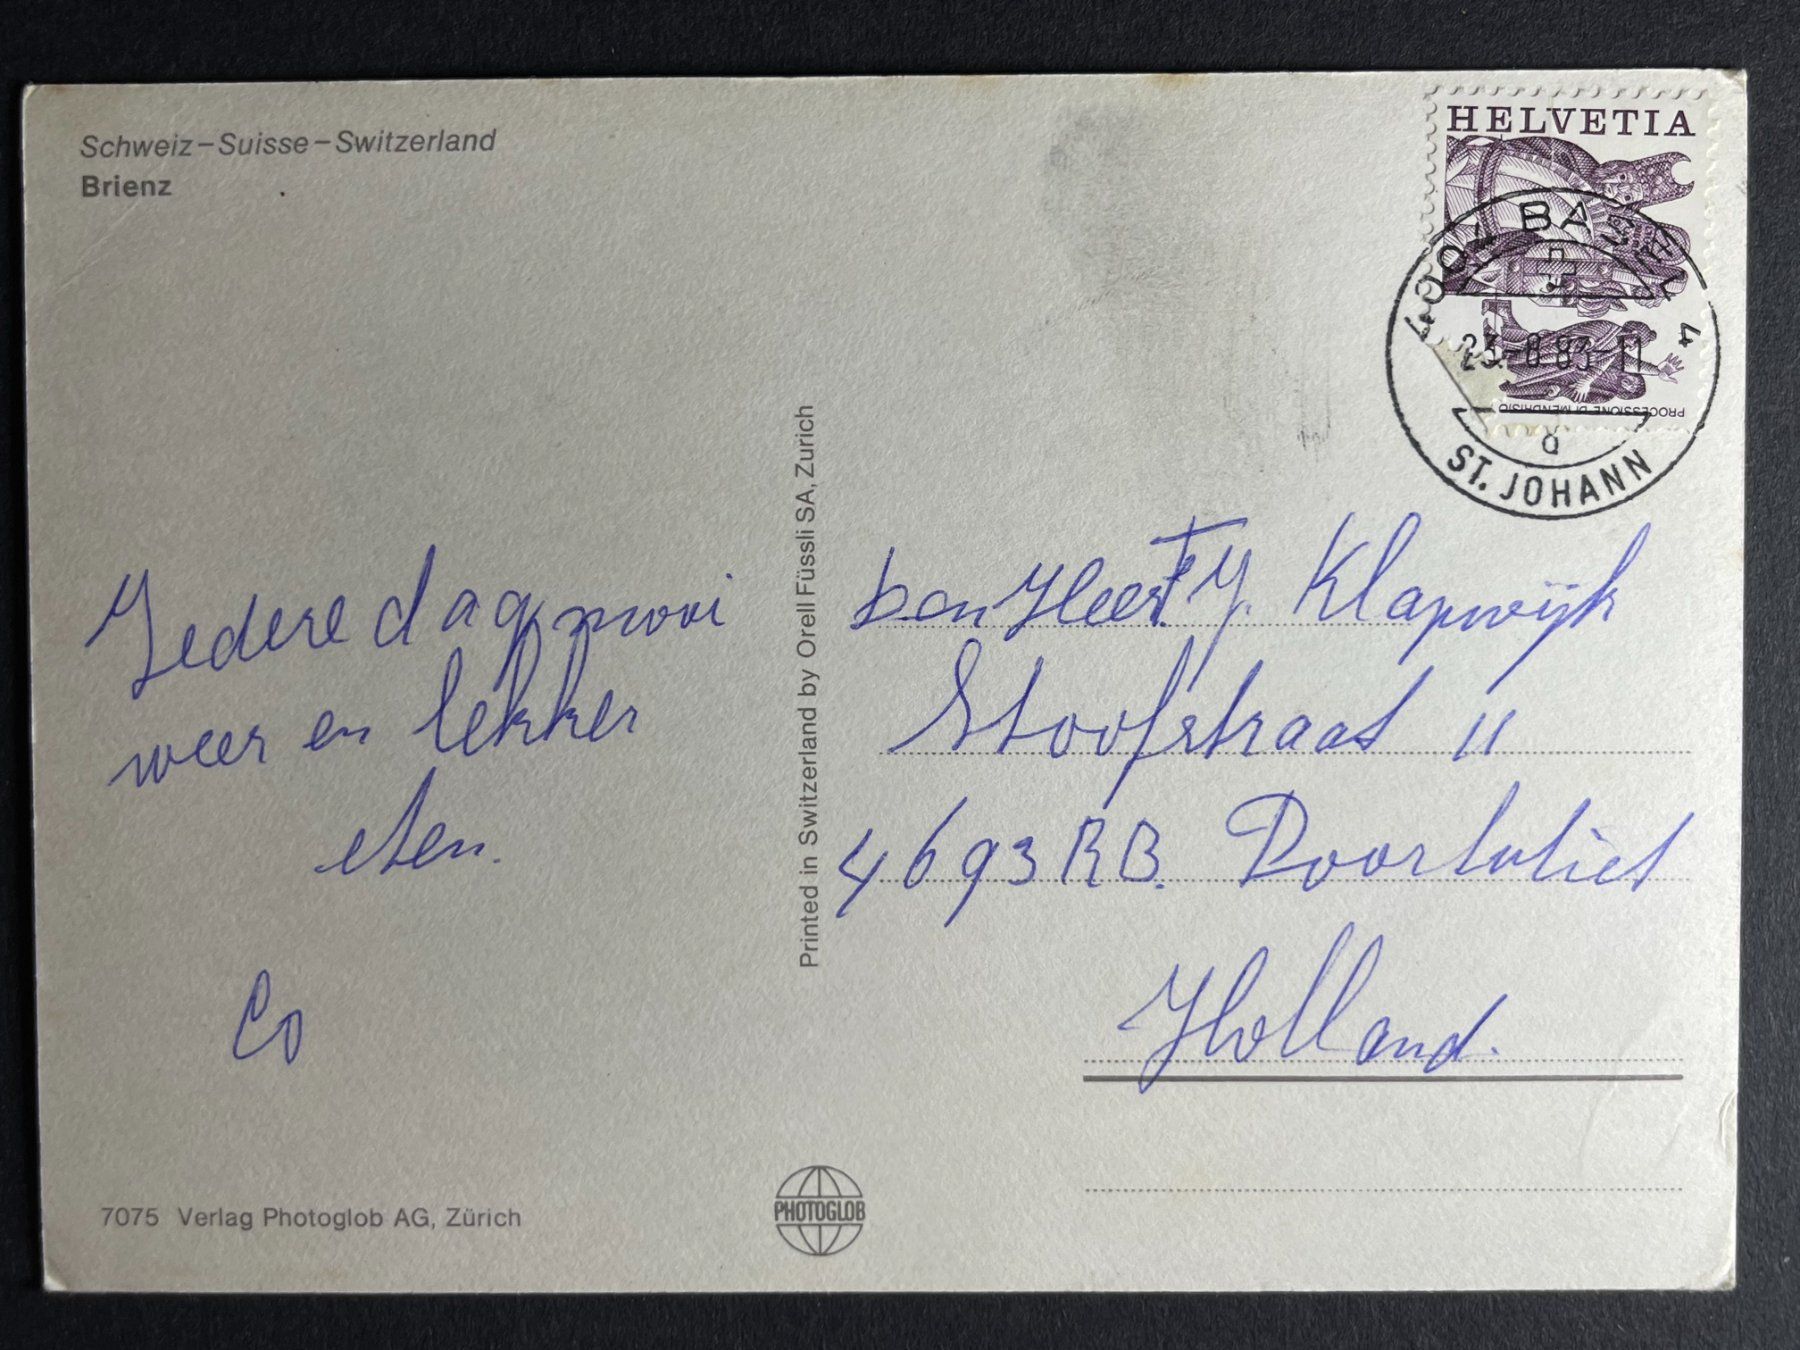 Schweiz–Suisse–Switzerland
Brienz
HELVETIA
4004 BASEL 4
23.-8.83-11
a
ST. JOHANN
PROCESSIONE DI MENDRISIO
Iedere dag mooi
weer en lekker
eten.
Co
Printed in Switzerland by Orell Füssli SA, Zurich
Den Heer J. Klapwijk
Stoofstraat 11
4693 RB. Poortvliet
Holland.
7075 Verlag Photoglob AG, Zürich
PHOTOGLOB